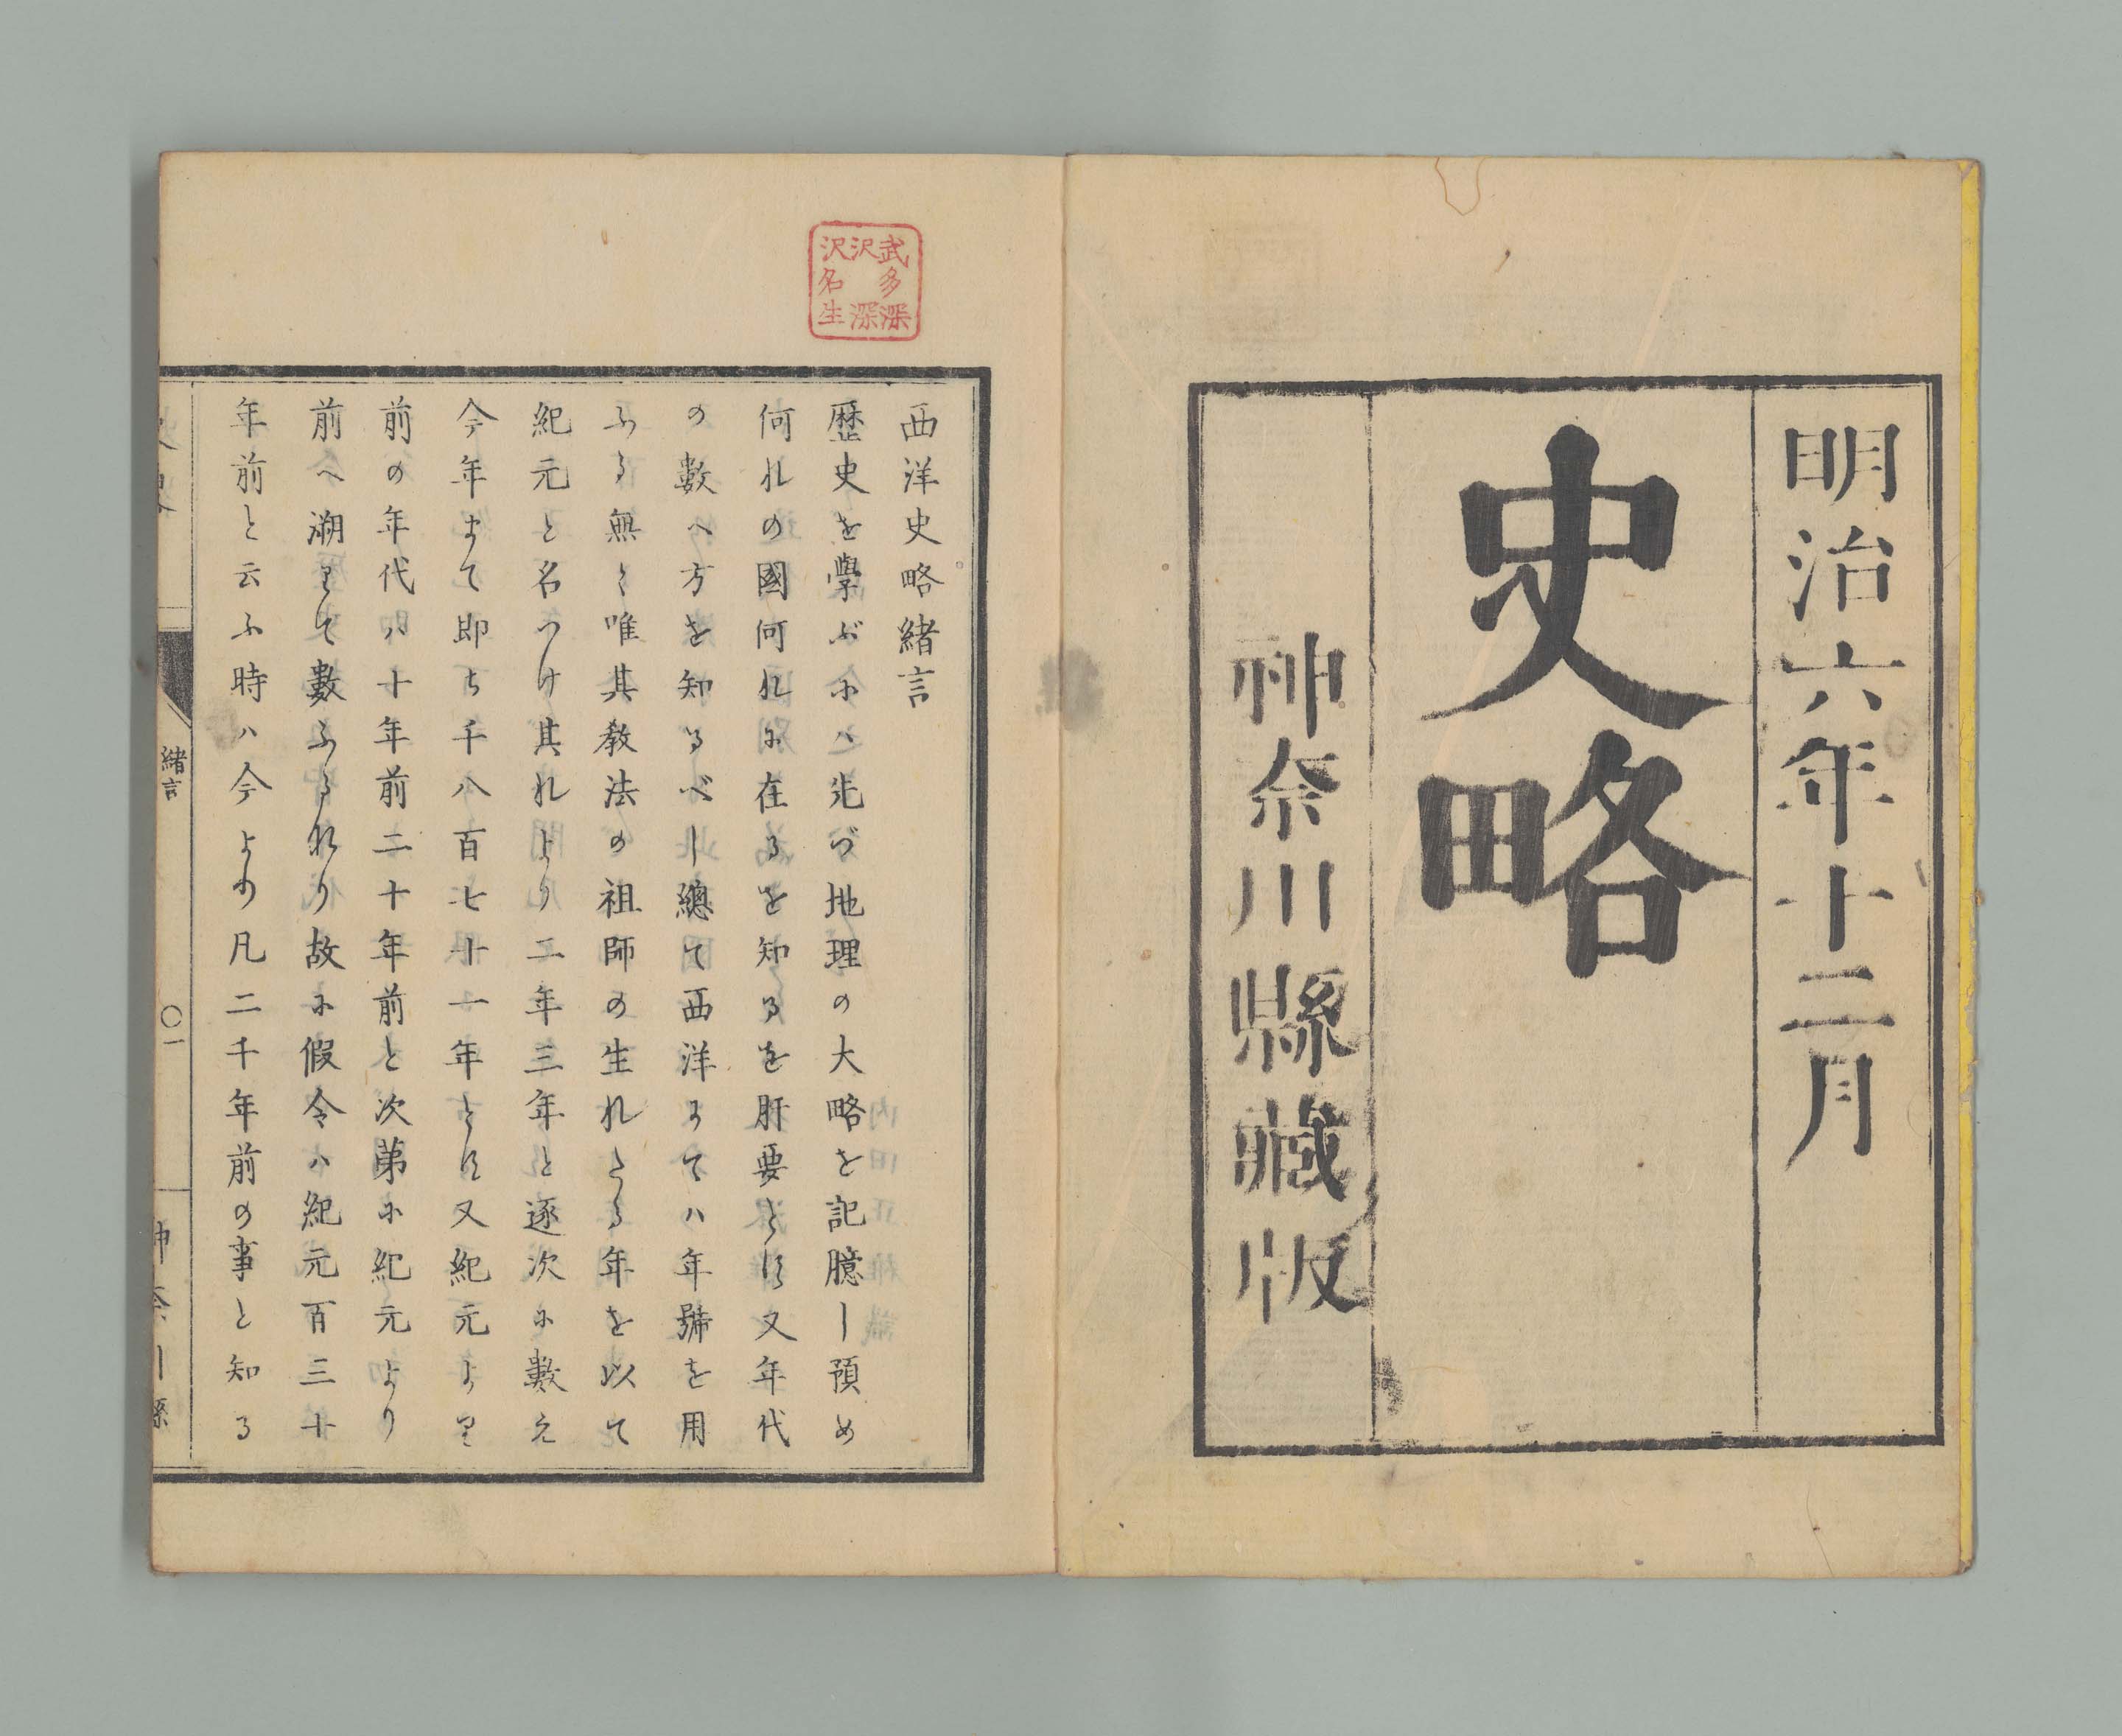 明治六年十二月
史略
神奈川縣藏版
武多深
沢深
沢名生
西洋史略緒言
歴史を學ぶにハ先づ地理の大略を記臆し預め
何れの國何れに在るを知るを肝要とす又年代
の數へ方を知るべし總て西洋にてハ年號を用
ふる無く唯其教法の祖師の生れたる年を以て
紀元と名つけ其れより二年三年と逐次に數え
今年まて即ち千八百七十一年とす又紀元より
前の年代ハ十年前二十年前と次第に紀元より
前へ溯りて數ふるなり故に假令ハ紀元百三十
年前と云ふ時ハ今よりの凡二千年前の事と知る
緒言
〇一